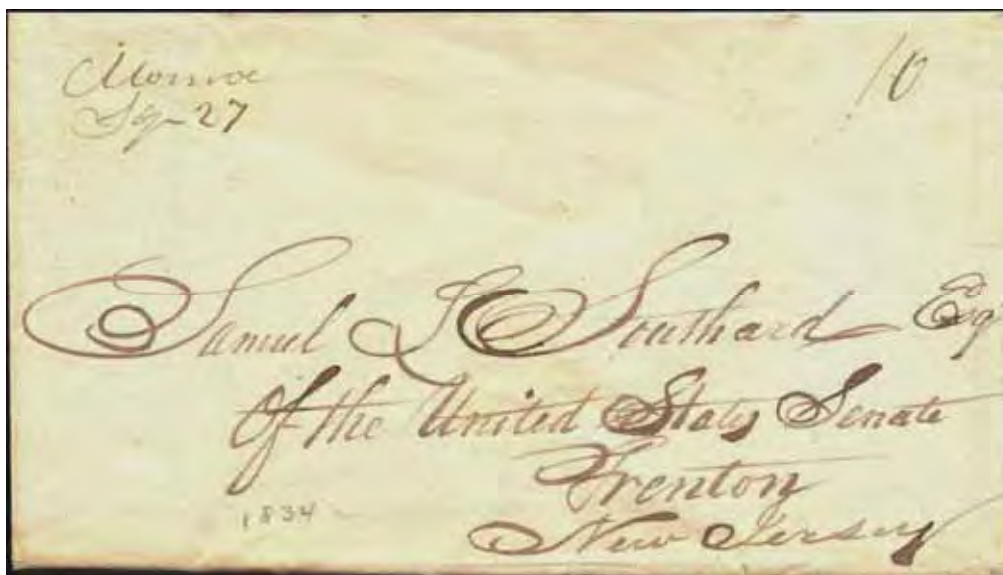 Monroe
Sep 27
10
Samuel L Southard Esq
Of the United States Senate
Trenton
New Jersey
1834